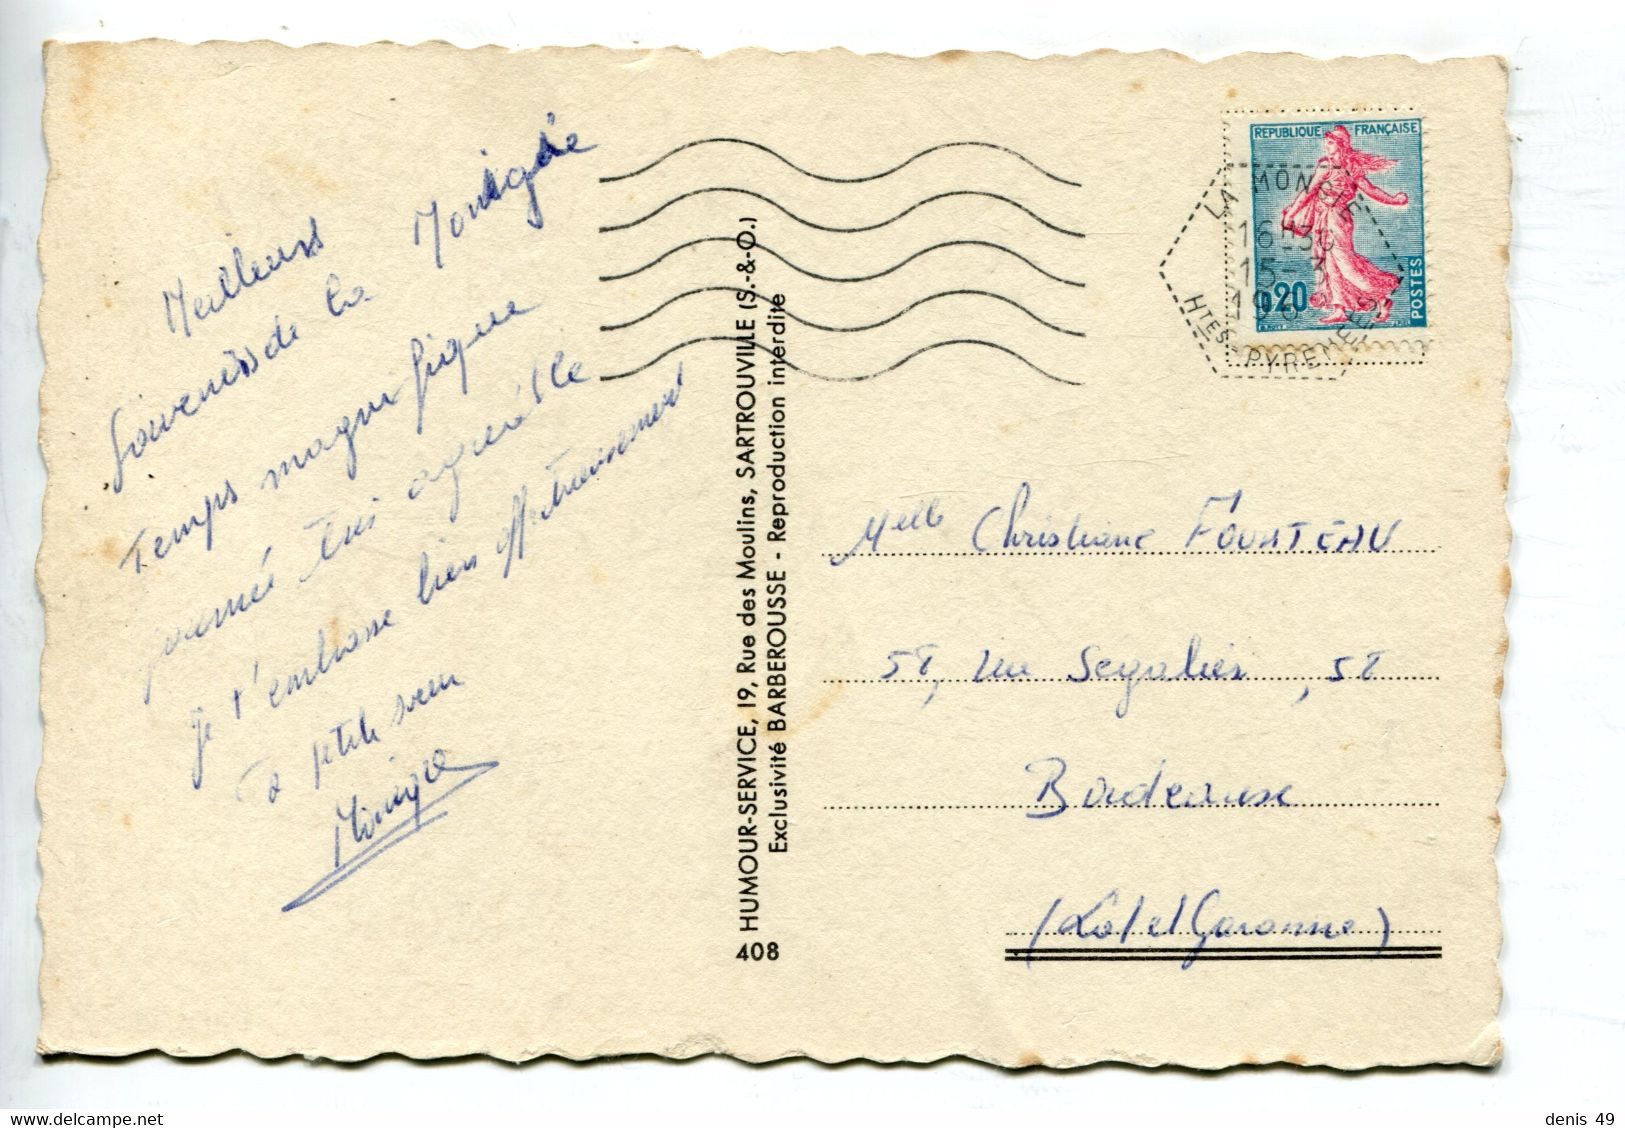 Meilleurs
Souvenirs de la Mongie
Temps magnifique
journée très agréable
je t'embrasse bien affectueusement
Ta petite soeur
Monique
HUMOUR-SERVICE, 19, Rue des Moulins, SARTROUVILLE (S.-&-O.)
Exclusivité BARBEROUSSE - Reproduction interdite
408
REPUBLIQUE FRANÇAISE
POSTES
0,20
LA MONGIE
16H30
15-3
HTES-PYRENEES
Melle Christiane FOUATEAU
58, rue Segalier, 58
Bordeaux
(Lot et Garonne)
denis 49